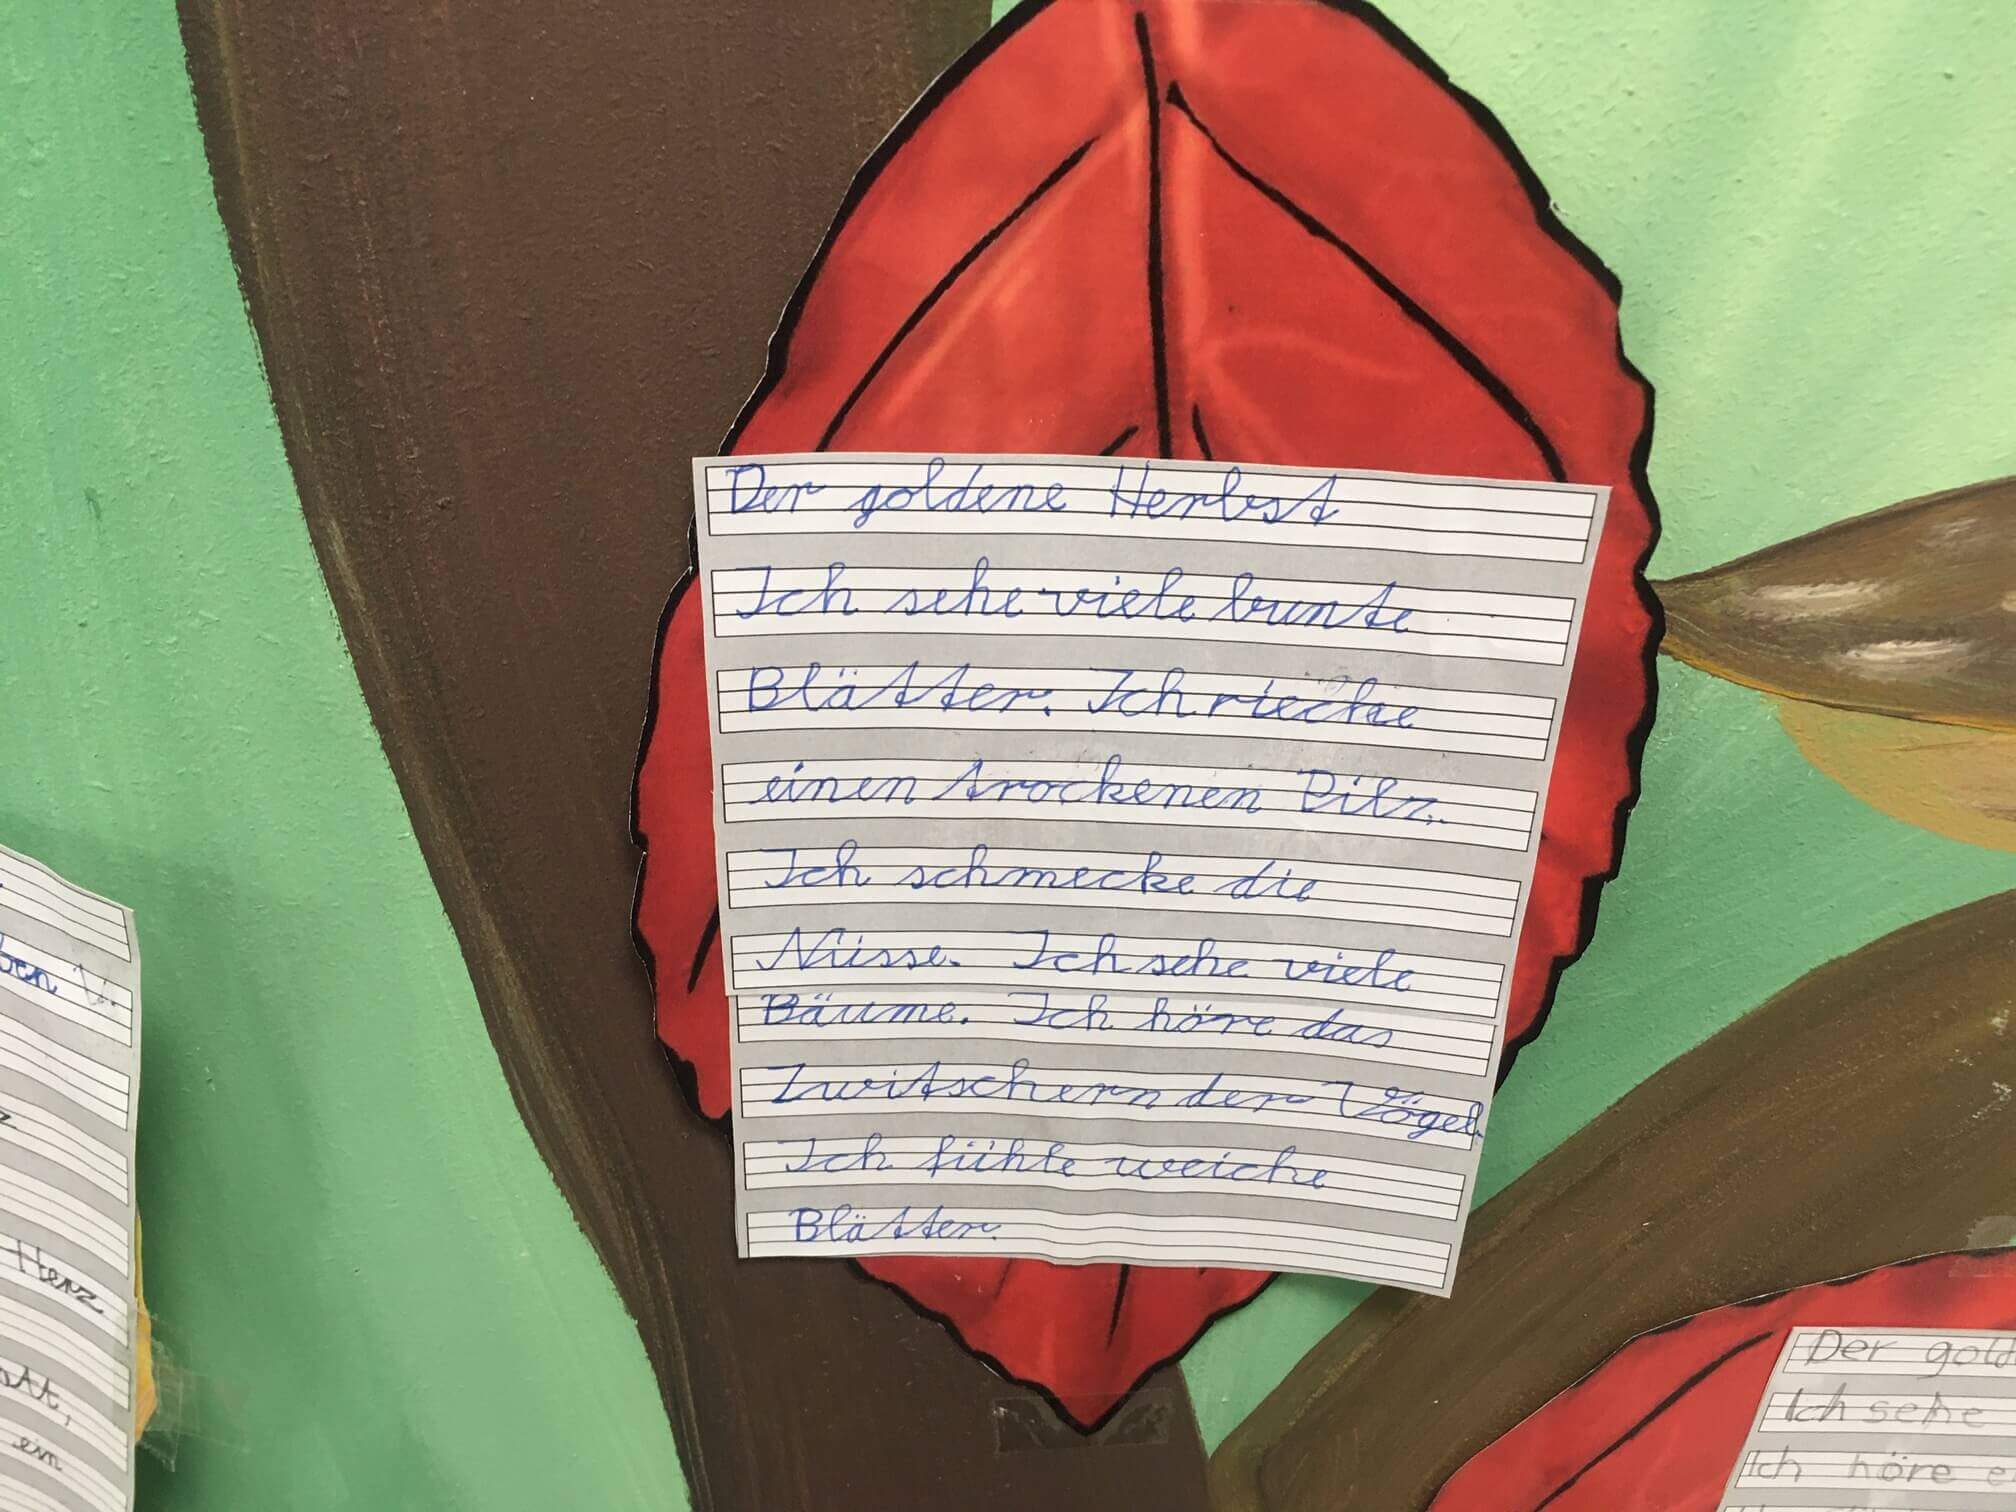 Der goldene Herbst
Ich sehe viele bunte
Blätter. Ich rieche
einen trockenen Pilz.
Ich schmecke die
Nüsse. Ich sehe viele
Bäume. Ich höre das
Zwitschern der Vögel.
Ich fühle weiche
Blätter.
Herz
ein
Der gold
Ich sehe
Ich höre e